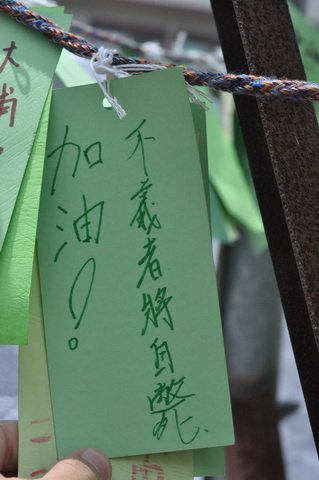 不義者將自斃
加油!
大埔